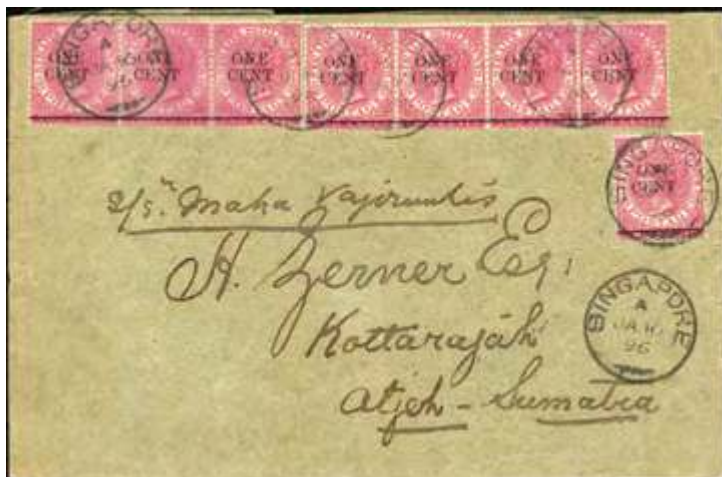 SINGAPORE A 96
ONE CENT ONE CENT ONE CENT ONE CENT ONE CENT ONE CENT ONE CENT
SINGAPORE
ONE CENT
Maha Vajirunhis
H. Zerner Esq:
Kottarajáh
Atjeh - Sumatra
SINGAPORE
A
JA 10
96